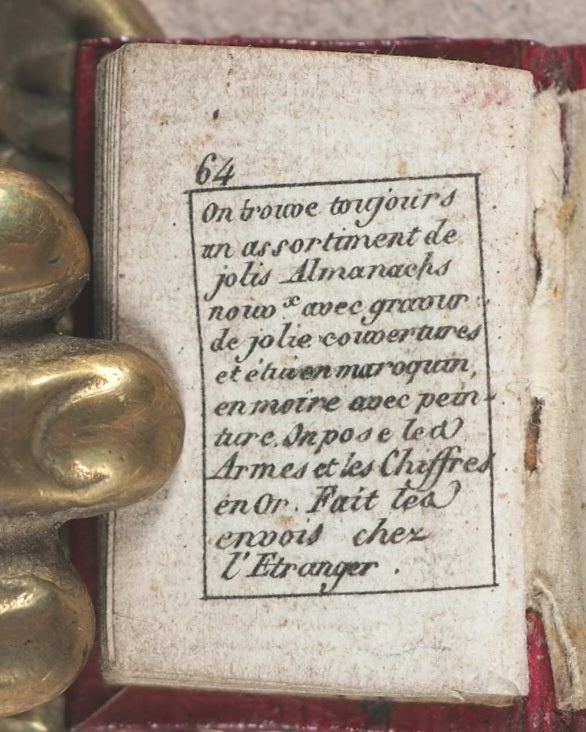 64
On trouve toujours
un assortiment de
jolis Almanachs
nouvˣ avec gravur:
de jolie couvertures
et étui en maroquin,
en moire avec pein-
ture. On pose les
Armes et les Chiffres
en Or. Fait les
envois chez
l'Etranger.